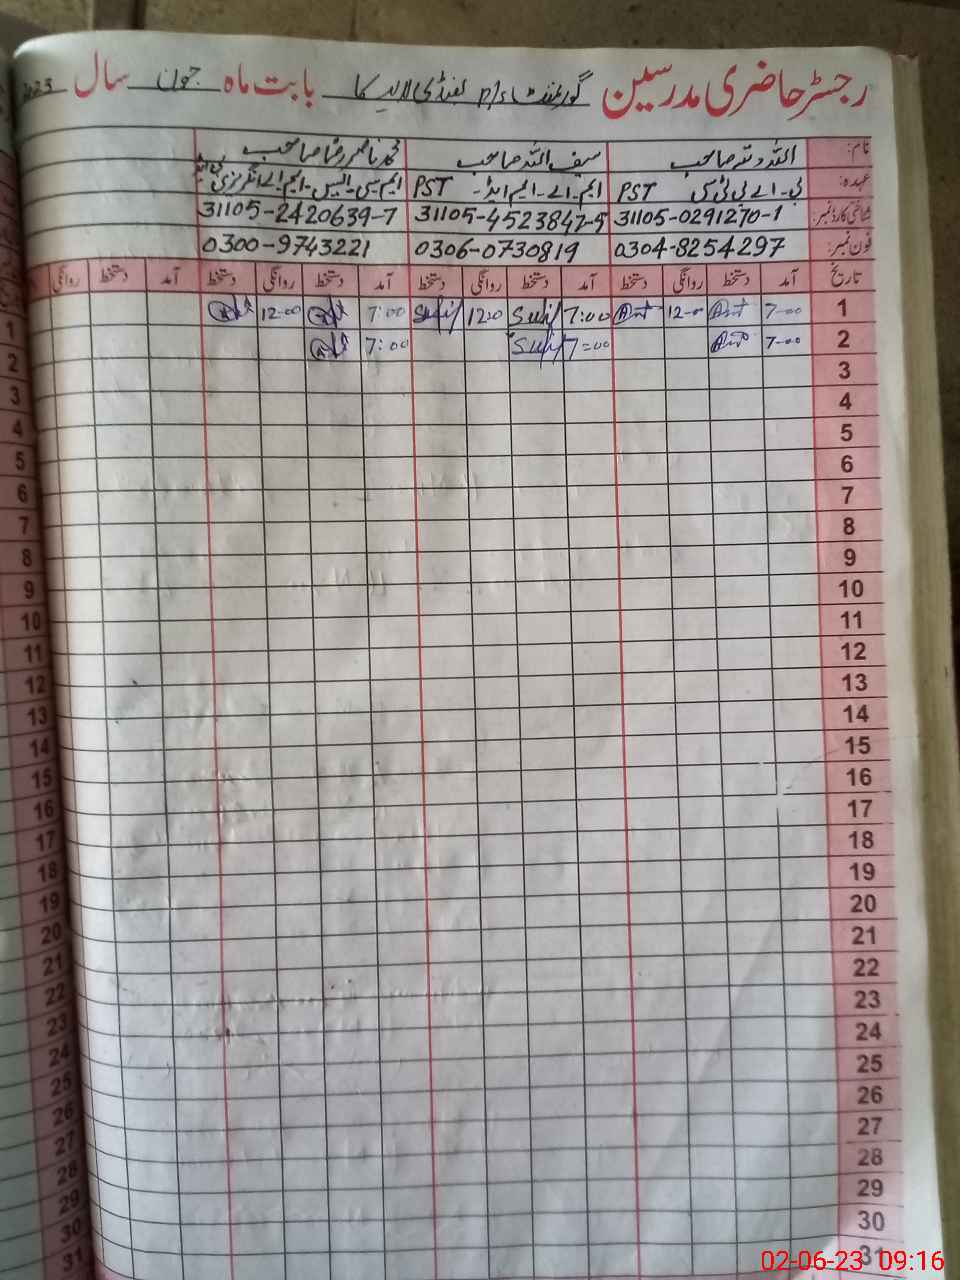 رجسٹر حاضری مدرسین گورنمنٹ p/s کا بابت ماہ جون سال 2023
نام: اللہ دتہ صاحب سیف اللہ صاحب محمد ناصر رضا صاحب
عہدہ: بی-اے پی ٹی سی PST ایم-اے-ایم ایڈ- PST ایم-سی-ایس-ایم-اے انگریزی
شناختی کارڈ نمبر: 31105-0291270-1 31105-4523847-5 31105-2420639-7
فون نمبر: 0304-8254297 0306-0730819 0300-9743221
تاریخ آمد دستخط روانگی دستخط آمد دستخط روانگی دستخط آمد دستخط روانگی دستخط آمد دستخط روانگی
1 7-00 12-00 7:00 Saif 12:00 Saif 7:00 12-00
2 7-00 7=00 Saif 7:00
3
4
5
6
7
8
9
10
11
12
13
14
15
16
17
18
19
20
21
22
23
24
25
26
27
28
29
30
31
1
2
3
4
5
6
7
8
9
10
11
12
13
14
15
16
17
18
19
20
21
22
23
24
25
26
27
28
29
30
31
02-06-23 09:16